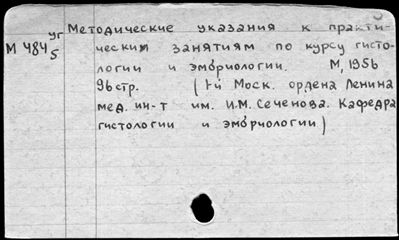 уг Методические указания к практи-
М 484 5 ческим занятиям по курсу гисто-
логии и эмбриологии. М, 1956
96 стр. (1-й Моск. ордена Ленина
мед. ин-т им. И.М. Сеченова. Кафедра
гистологии и эмбриологии)